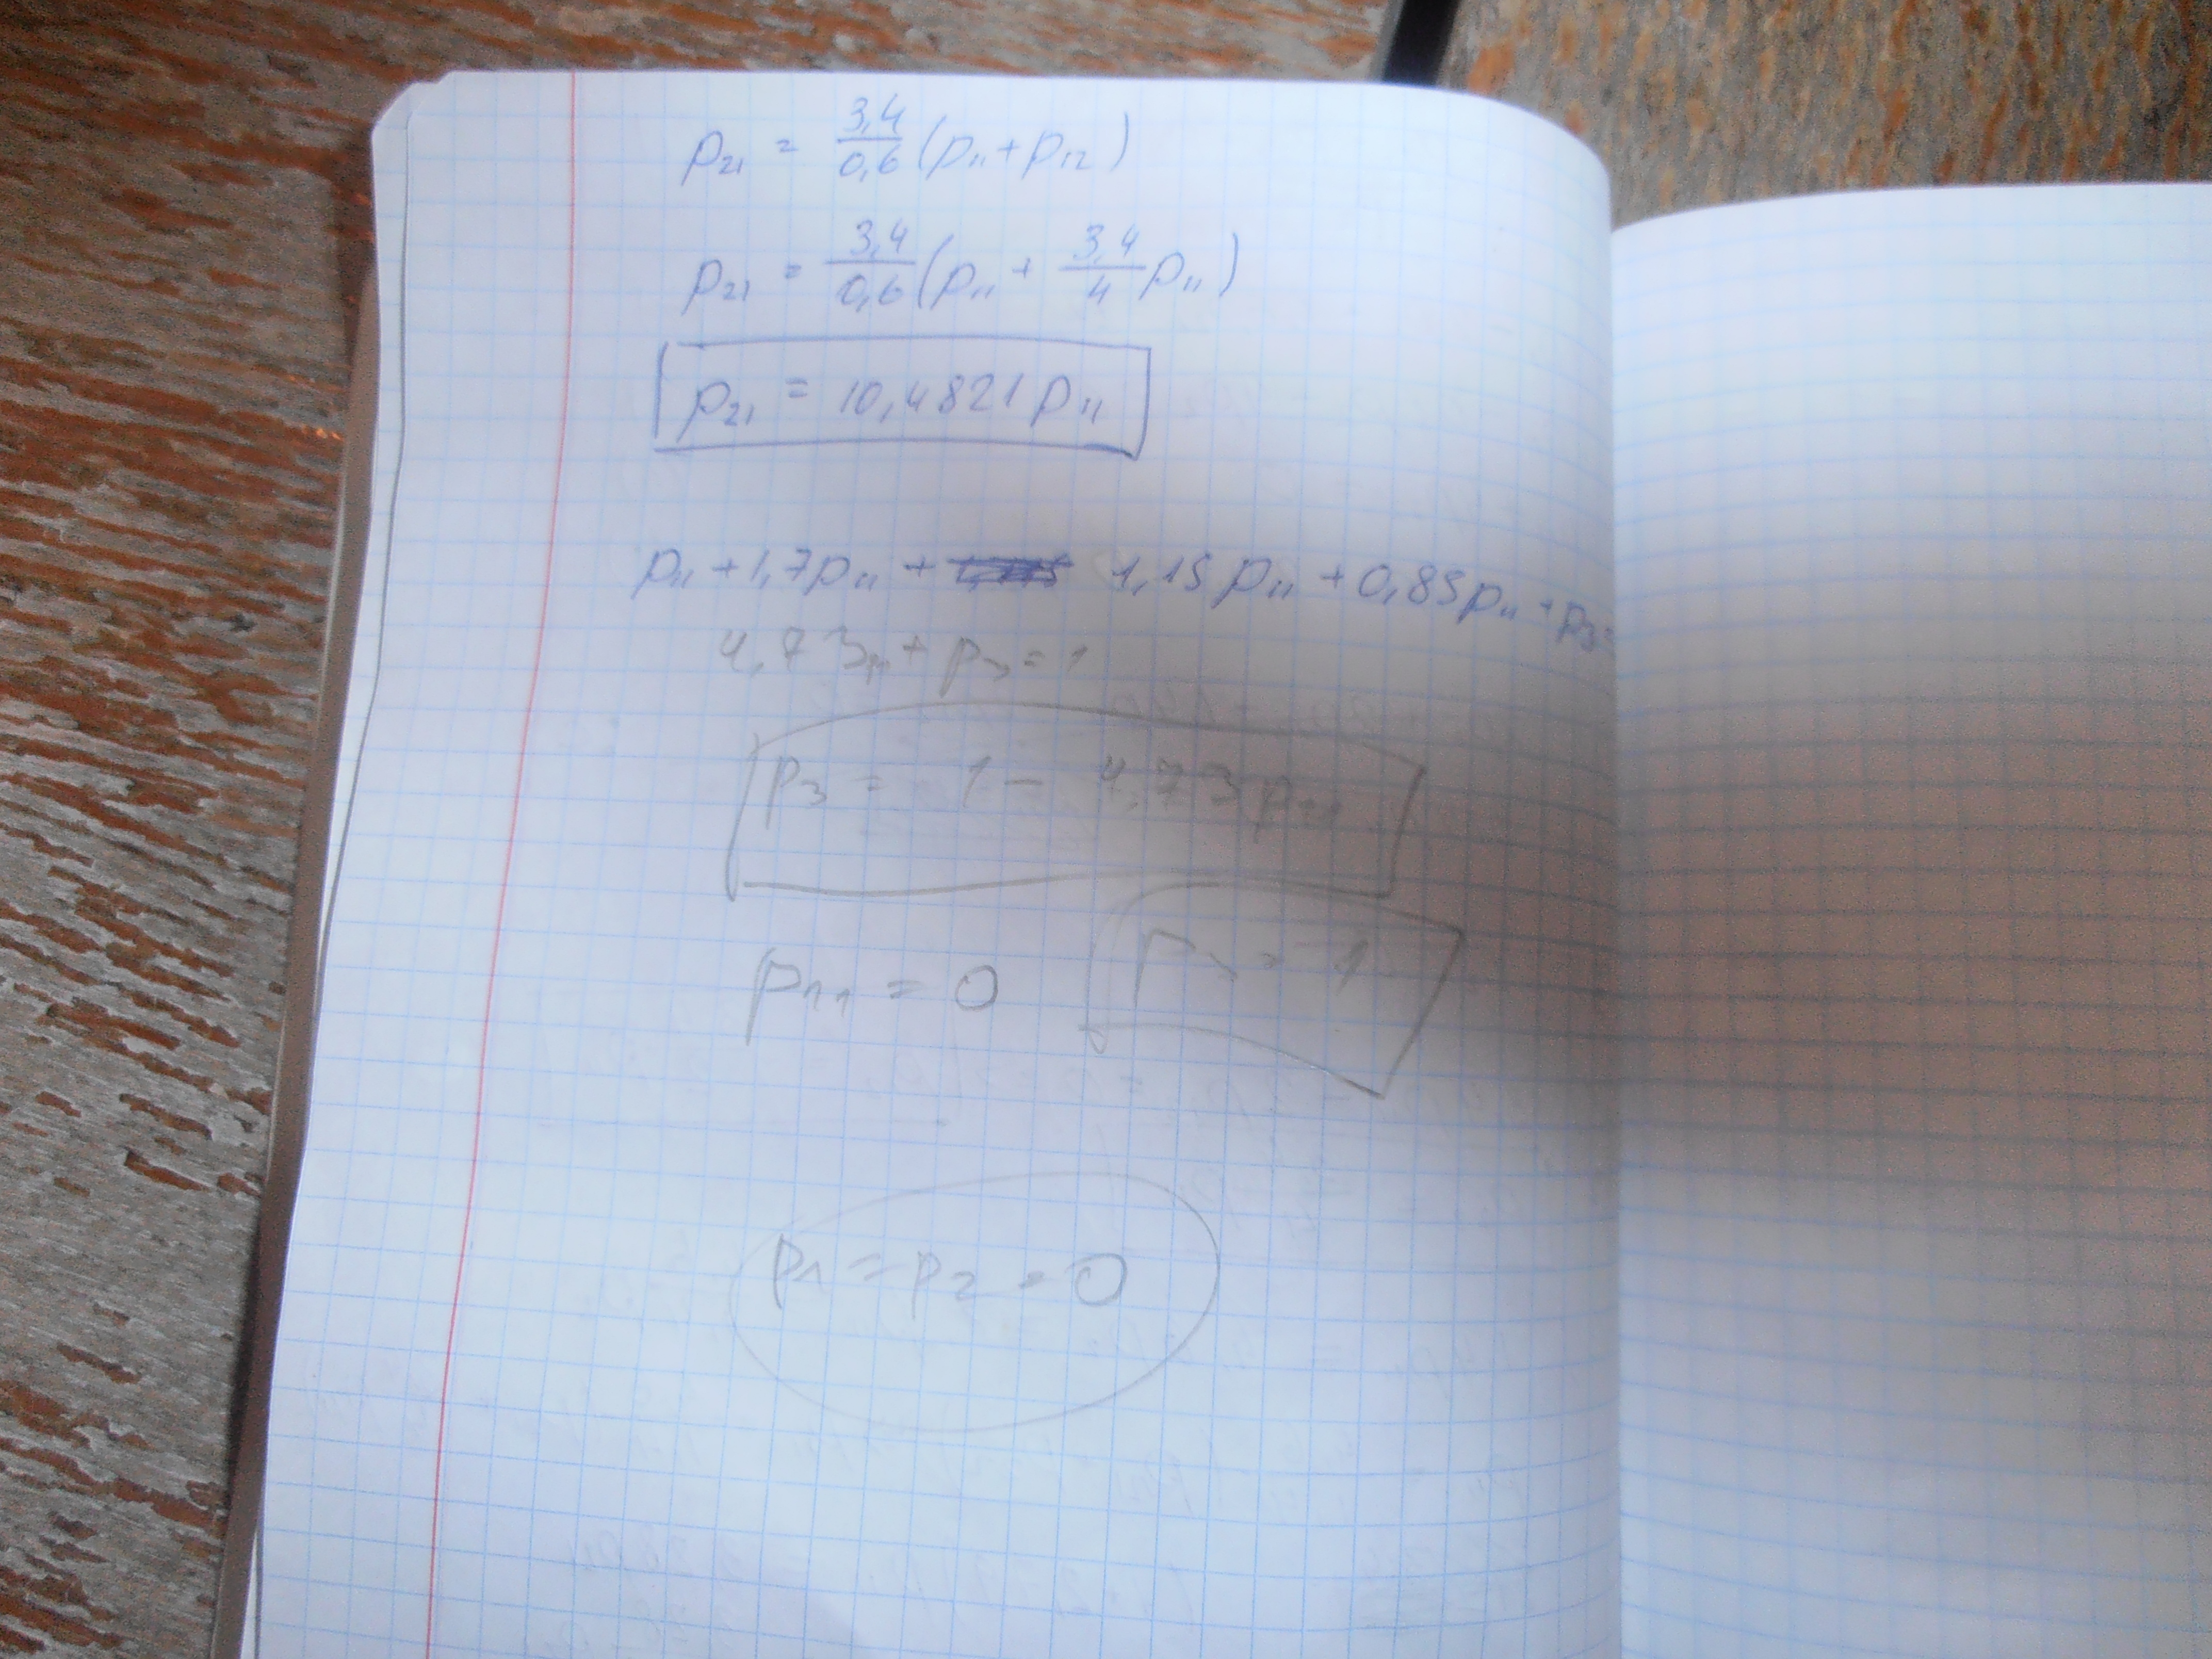 p₂₁ = 3,4/0,6 (p₁₁ + p₁₂)
p₂₁ = 3,4/0,6 (p₁₁ + 3,4/4 p₁₁)
p₂₁ = 10,4821 p₁₁
p₁₁ + 1,7p₁₁ + 1,15p₁₁ + 0,85p₁₁ + p₃ =
4,73₁₁ + p₃ = 1
p₃ = 1 - 4,73p₁₁
p₁₁ = 0 p₃ = 1
p₁ = p₂ = 0